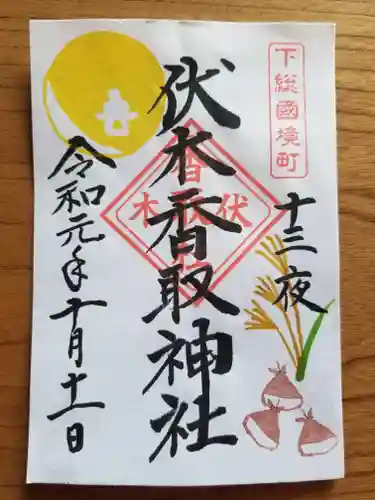 下総國境町
十三夜
伏木香取神社
令和元年十月十一日